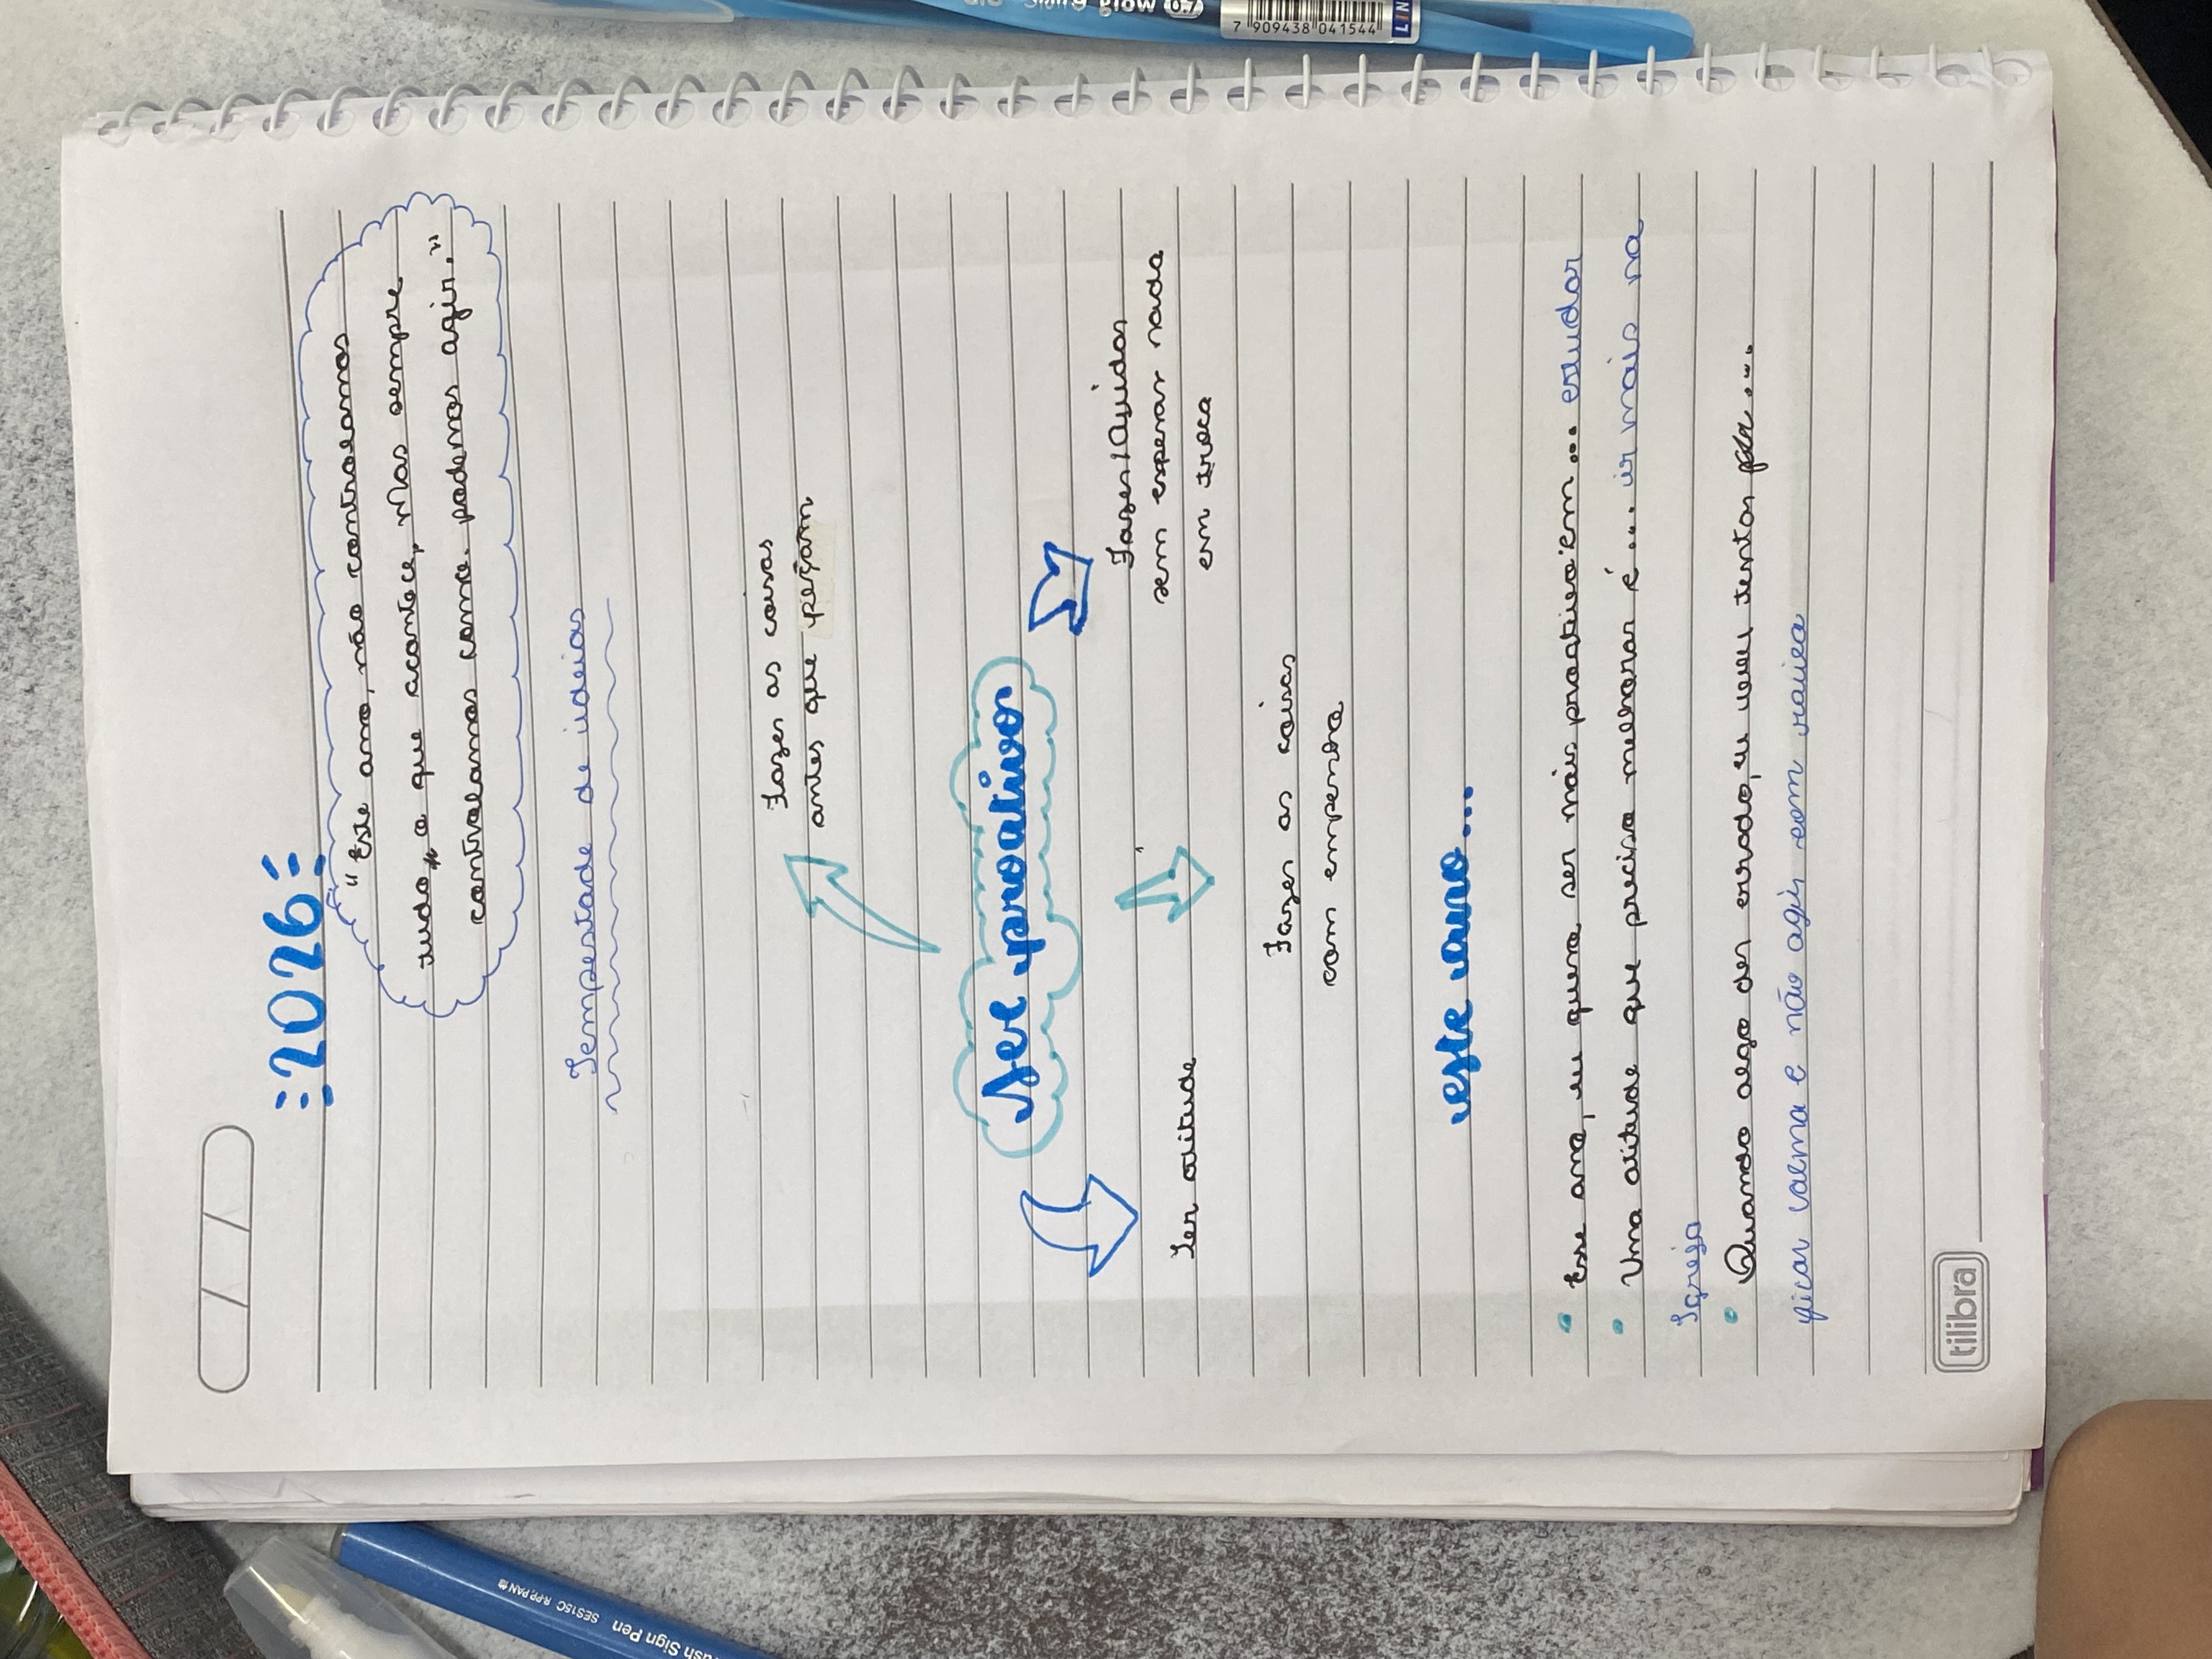 2026
"Este ano, não controlamos
tudo o que acontece, mas sempre
controlamos como podemos agir."
Tempestade de ideias
Fazer as coisas
antes que peçam
Ser proativo
Ter atitude
Fazer as coisas
com empenho
Fazer/Ajudar
sem esperar nada
em troca
este ano...
Esse ano, eu quero ser mais proativo em... estudar
Uma atitude que preciso melhorar é... ir mais na
Igreja
Quando algo der errado, eu vou tentar ...
ficar calma e não agir com raiva
tilibra
glow 0.7
7 909438 041544
Brush Sign Pen
SES15C